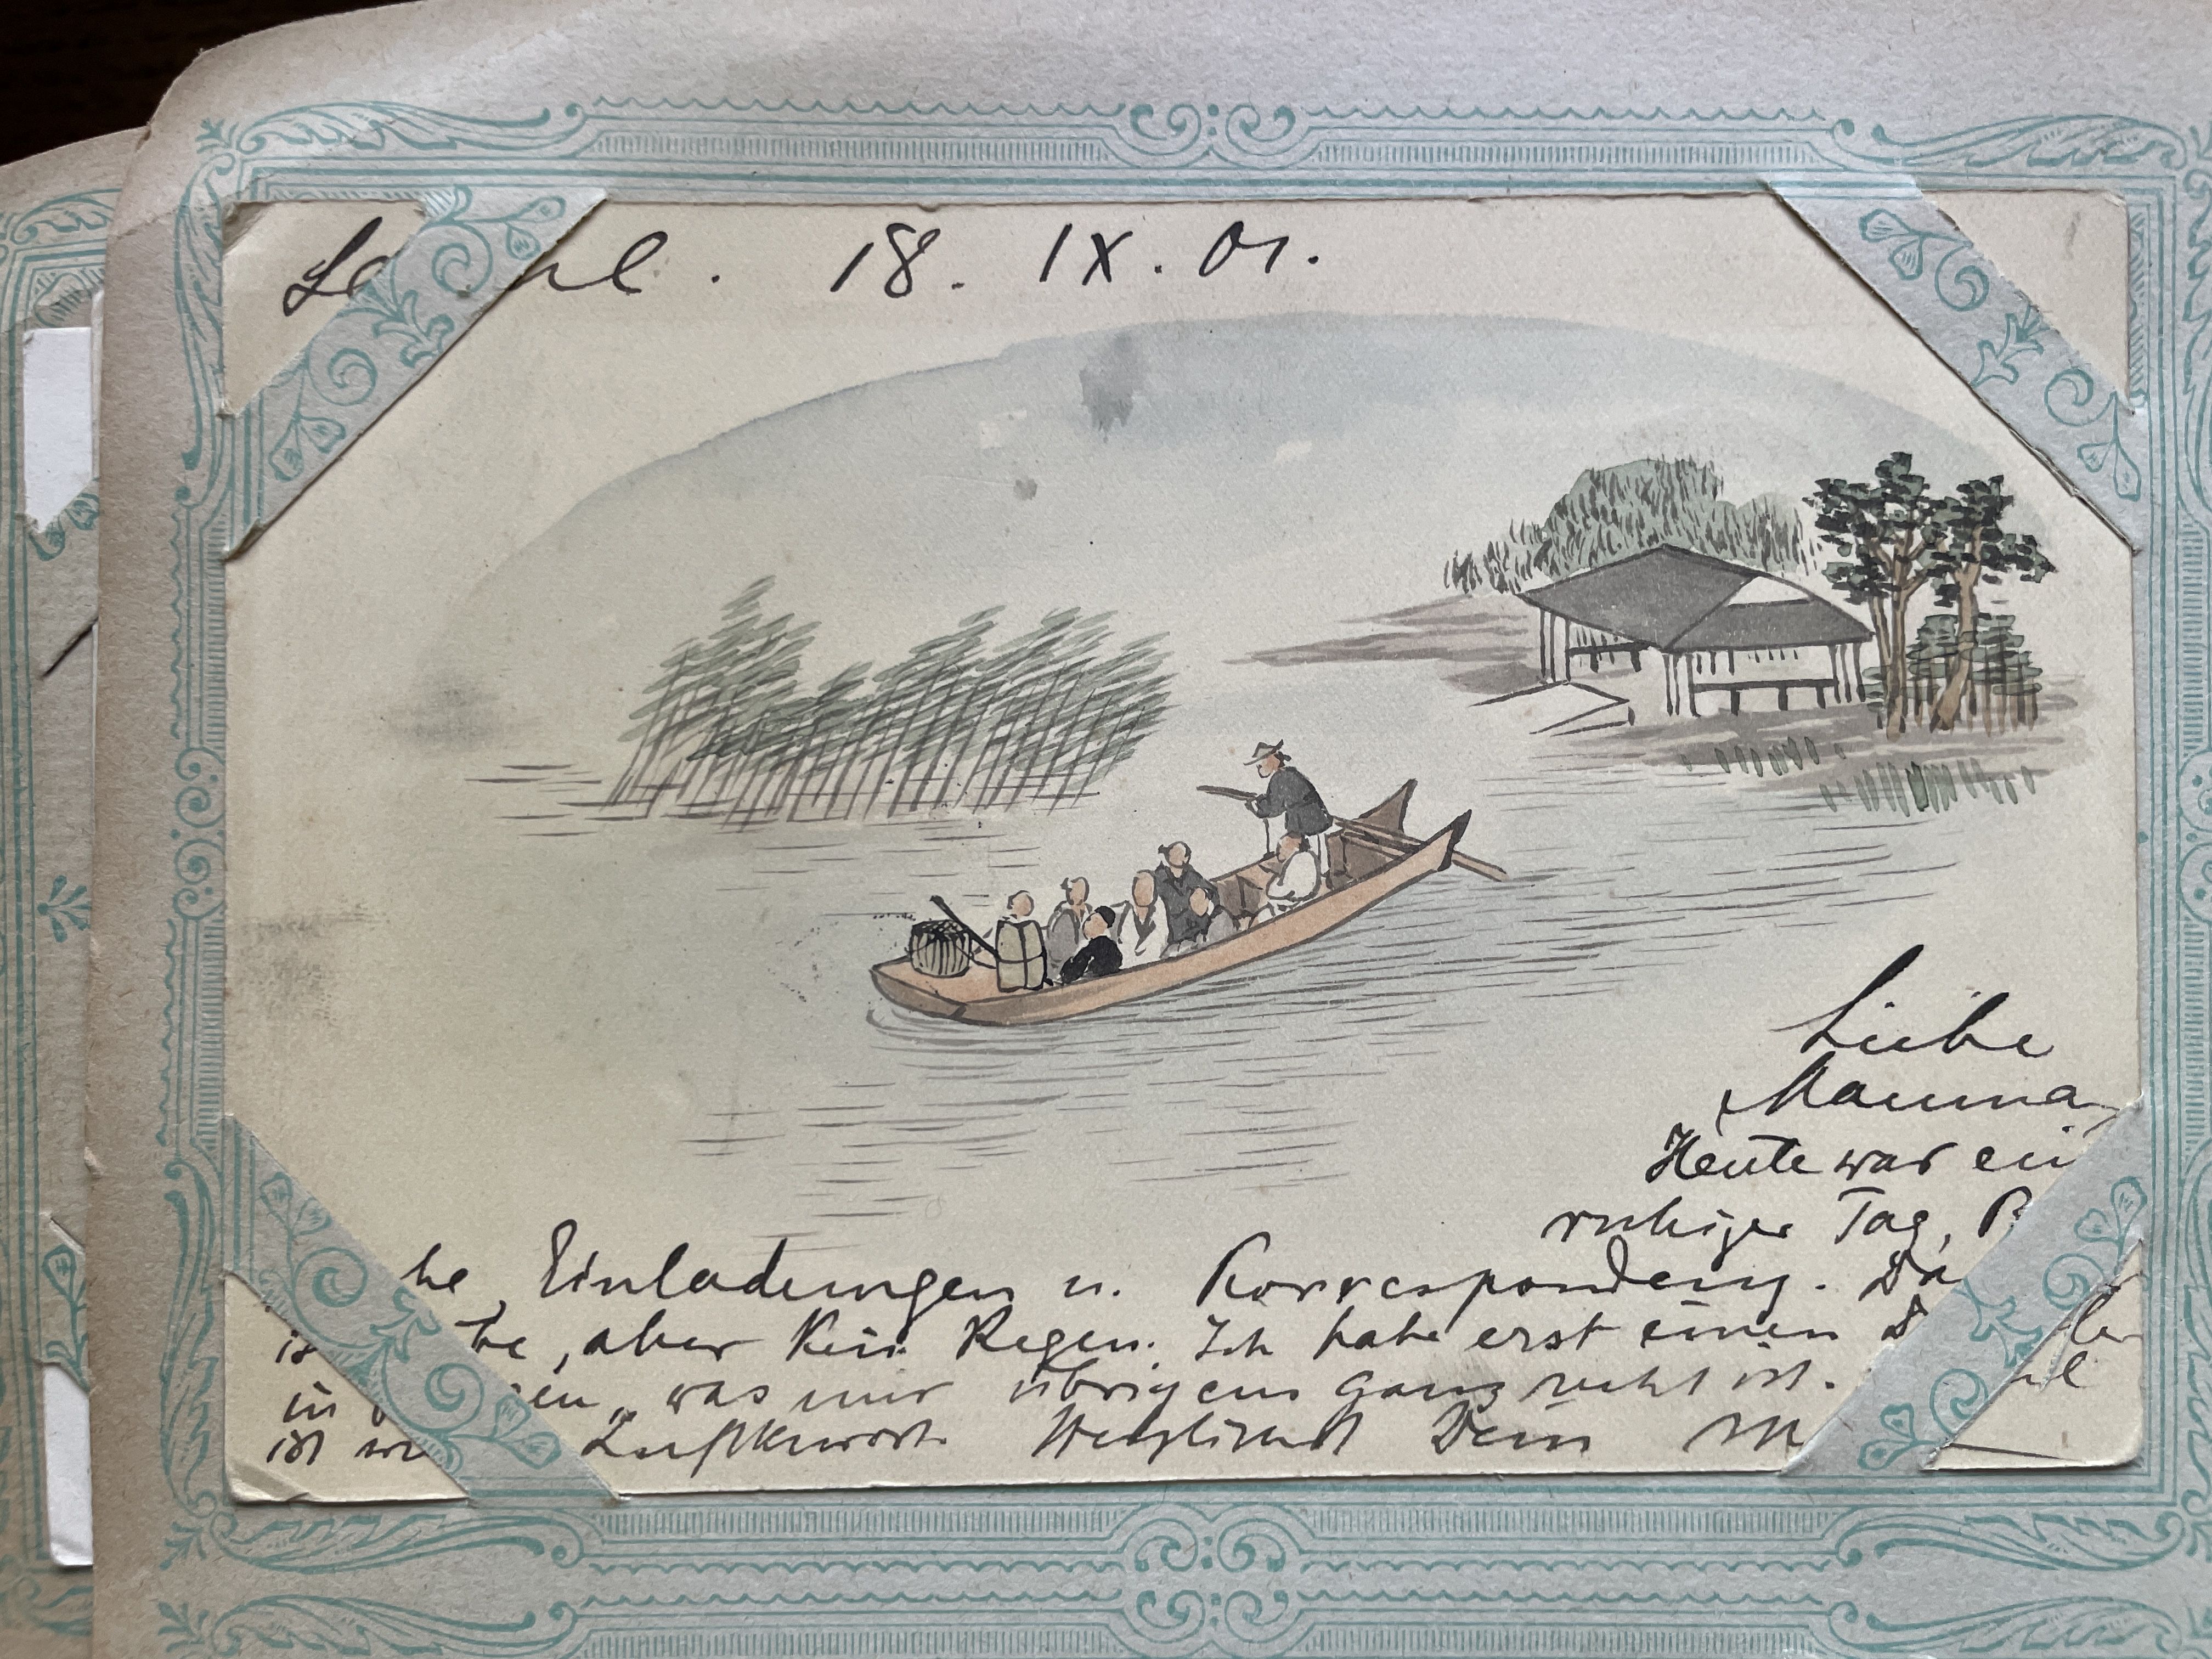 18. IX. 01.
Liebe
Mamma
Heute war ein
ruhiger Tag, B
he, Einladungen u. Korrespondenz. Da
he, aber kein Regen. Ich habe erst einen
in en, was mir übrigens ganz recht ist.
ist Luftkurort. Herzlichst Dein M